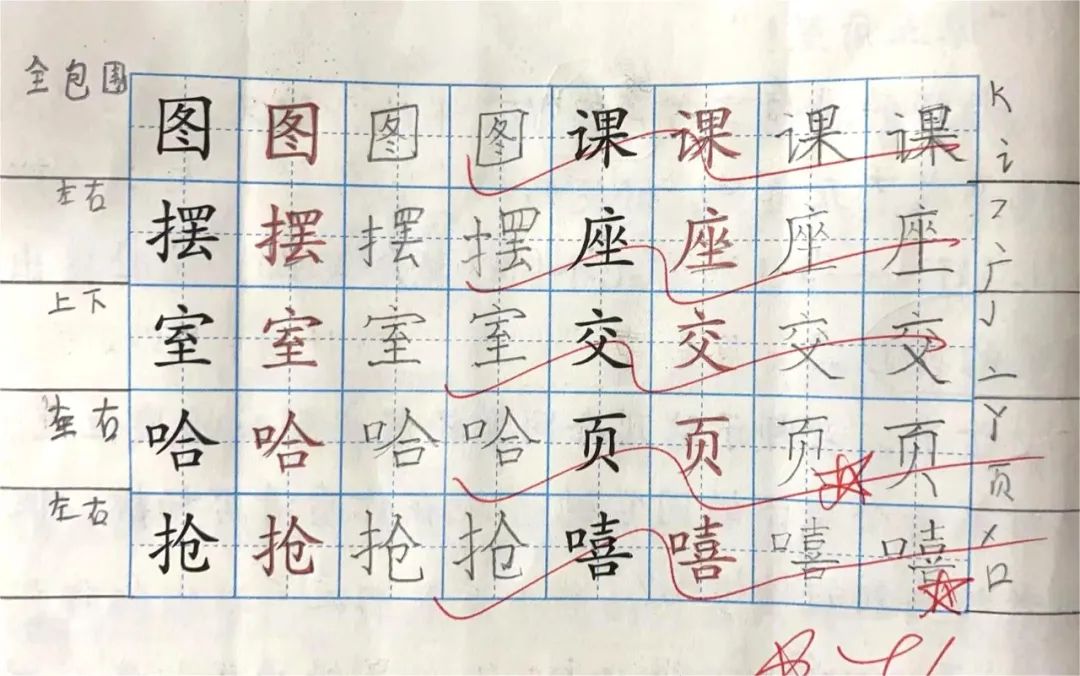 全包围 图 图 图 图 课 课 课 课 K 讠
左右 摆 摆 摆 摆 座 座 座 座 广
上下 室 室 室 室 交 交 交 交 J 亠
左右 哈 哈 哈 哈 页 页 页 页 Y 页
左右 抢 抢 抢 抢 嘻 嘻 嘻 嘻 X 口